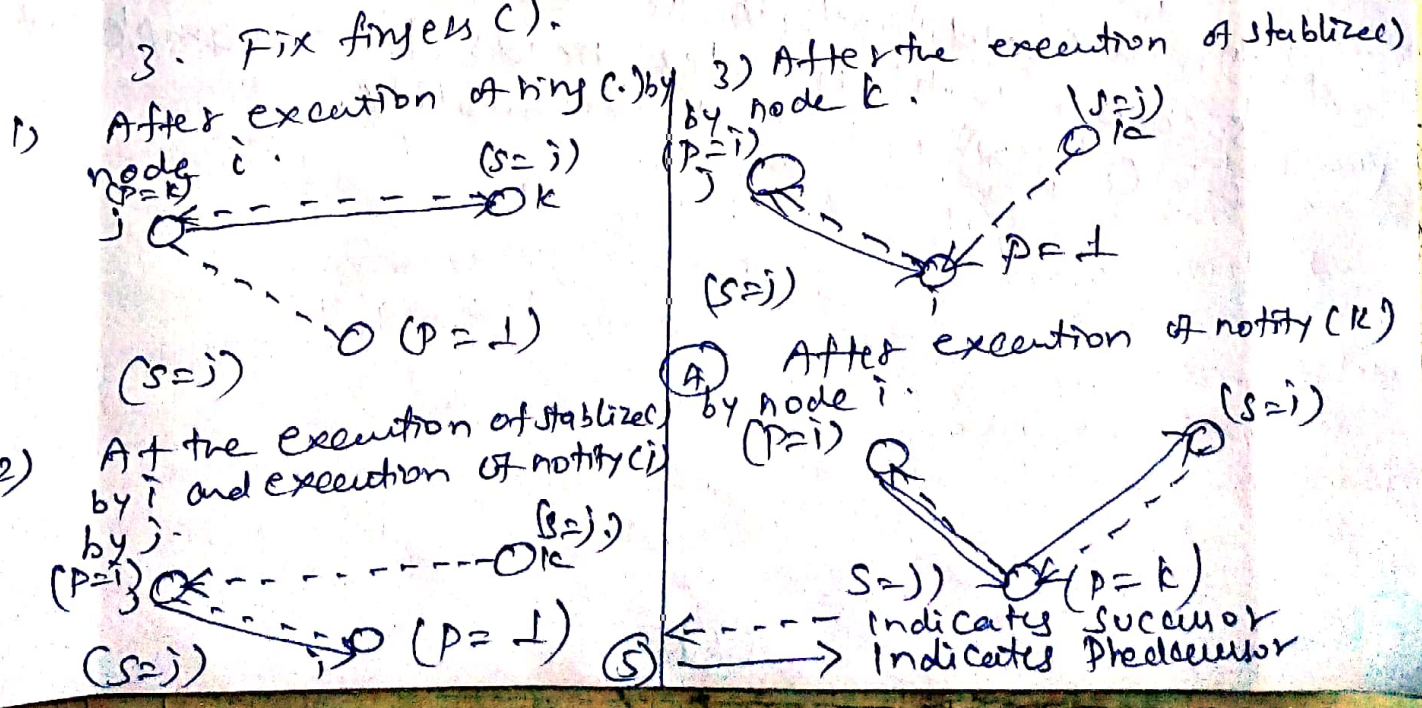 3. Fix fingers ().
1) After excution of ring (.) by
node i.
(p=k)
(s=j)
j
k
(p=⊥)
(s=j)
2) At the execution of stablize()
by i and execution of notify(i)
by j.
(p=i)
j
(s=j)
k
i
(p=⊥)
(s=j)
3) After the execution of stablize()
by node k.
(p=i)
j
(s=j)
k
p=⊥
(s=j)
i
4 After execution of notify (k)
by node i.
(p=i)
(s=i)
s=j)
(p=k)
5 indicates successor
indicates Predecessor